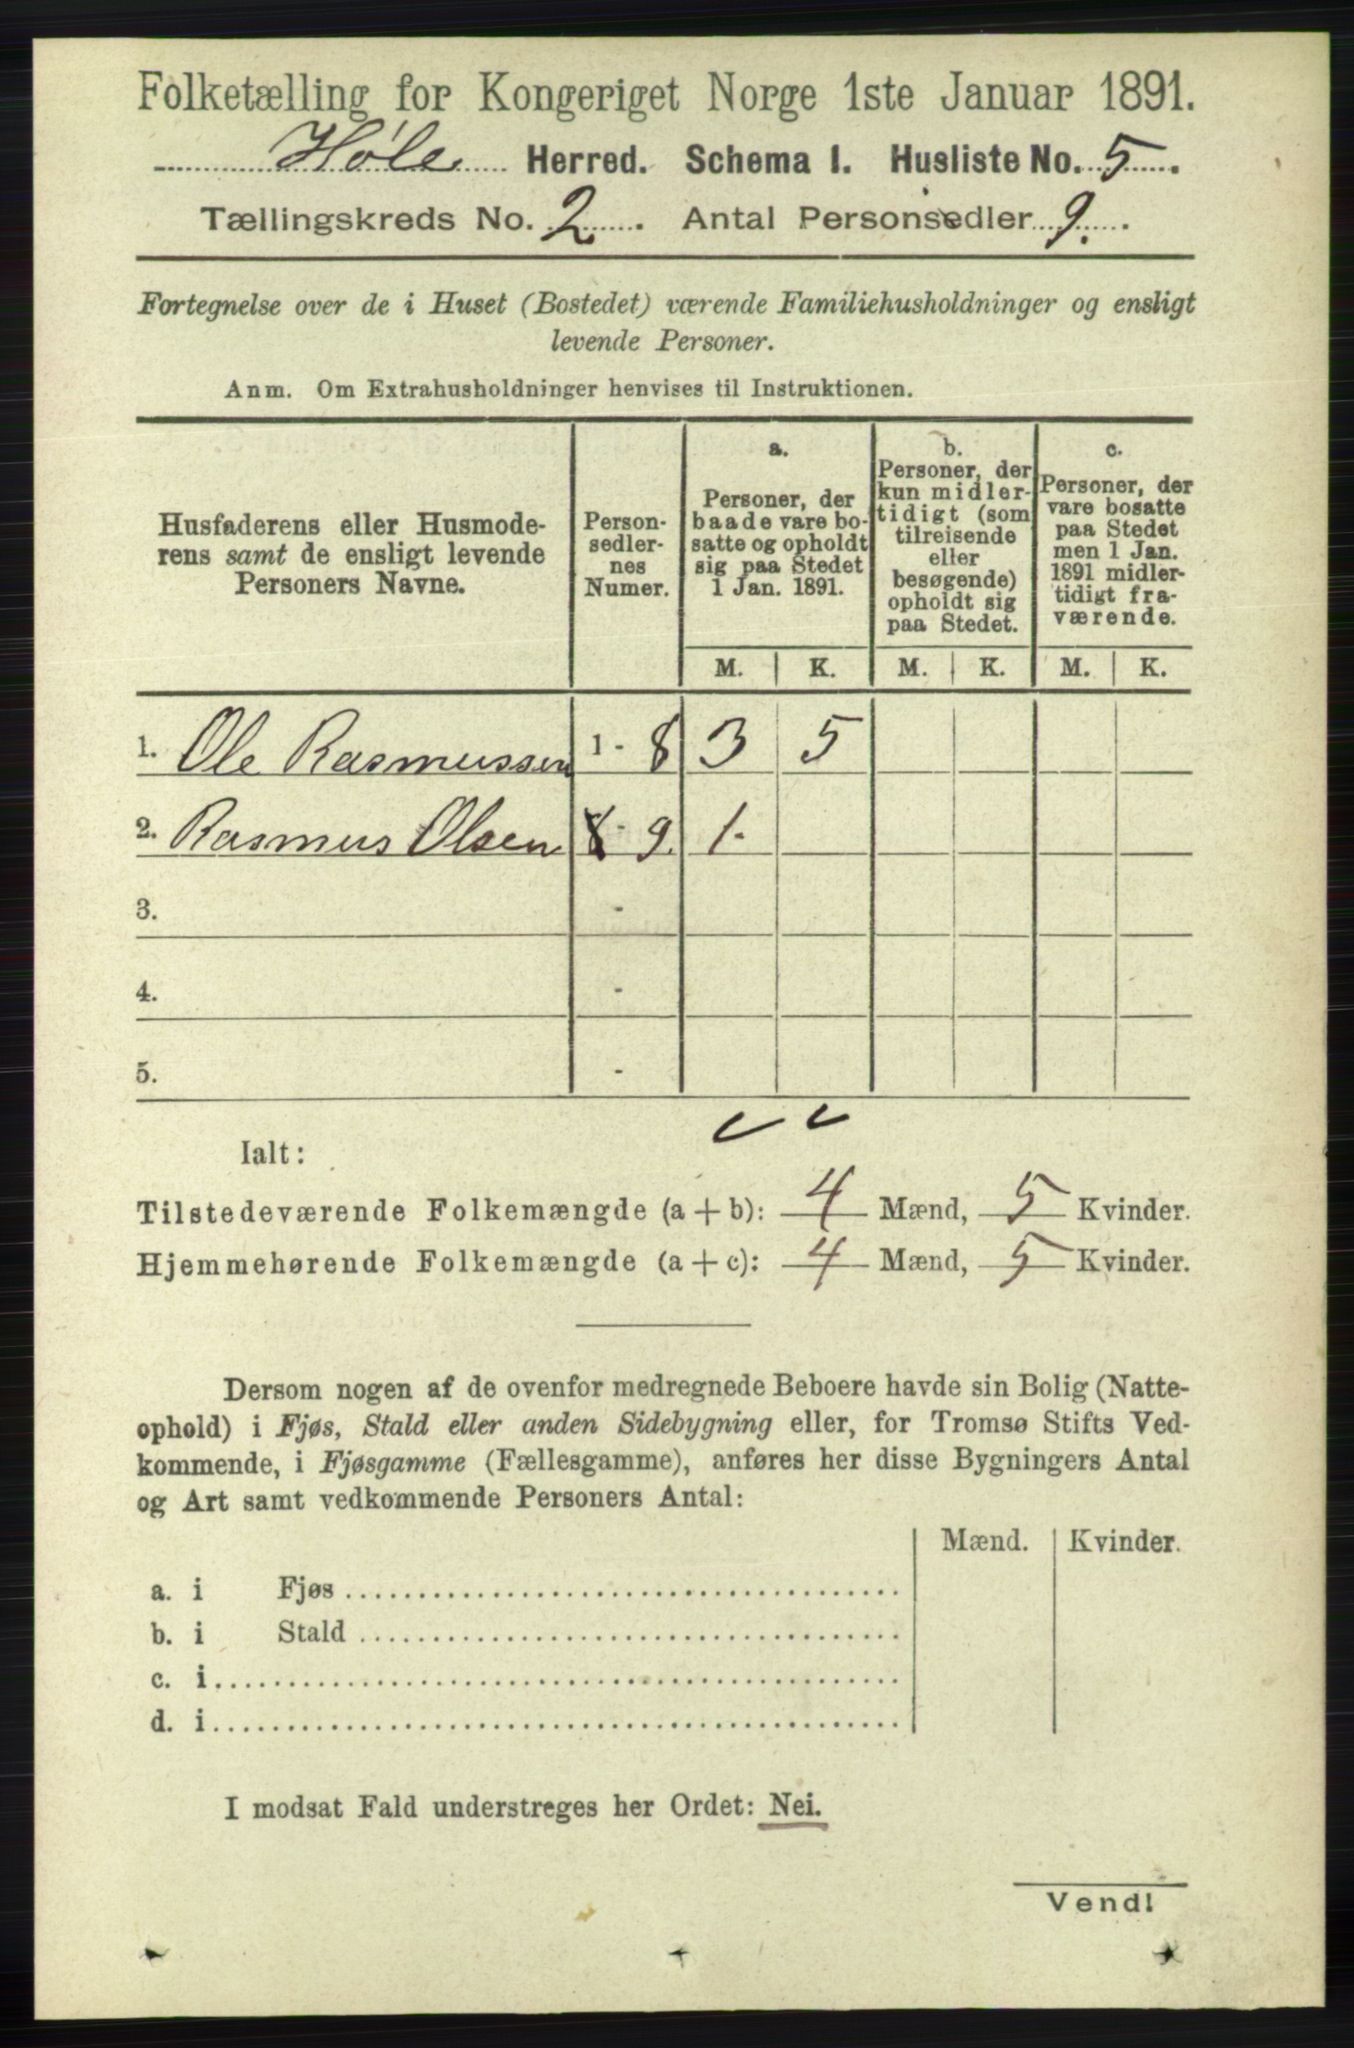 Folketælling for Kongeriget Norge 1ste Januar 1891.
Høle Herred. Schema 1. Husliste No. 5.
Tællingskreds No. 2. Antal Personsedler 9.
Fortegnelse over de i Huset (Bostedet) værende Familiehusholdninger og ensligt
levende Personer.
Anm. Om Extrahusholdninger henvises til Instruktionen.
Husfaderens eller Husmode-
rens samt de ensligt levende
Personers Navne.
Person-
sedler-
nes
Numer.
a.
Personer, der
baade vare bo-
satte og opholdt
sig paa Stedet
1 Jan. 1891.
b.
Personer, der
kun midler-
tidigt (som
tilreisende
eller
besøgende)
opholdt sig
paa Stedet.
c.
Personer, der
vare bosatte
paa Stedet
men 1 Jan.
1891 midler-
tidigt fra-
værende.
M. K. M. K. M. K.
1. Ole Rasmussen 1 - 8 3 5
2. Rasmus Olsen 8 - 9. 1.
3. -
4. -
5. -
Ialt:
Tilstedeværende Folkemængde (a + b): 4 Mænd, 5 Kvinder.
Hjemmehørende Folkemængde (a + c): 4 Mænd, 5 Kvinder.
Dersom nogen af de ovenfor medregnede Beboere havde sin Bolig (Natte-
ophold) i Fjøs, Stald eller anden Sidebygning eller, for Tromsø Stifts Ved-
kommende, i Fjøsgamme (Fællesgamme), anføres her disse Bygningers Antal
og Art samt vedkommende Personers Antal:
Mænd. Kvinder.
a. i Fjøs
b. i Stald
c. i
d. i
I modsat Fald understreges her Ordet: Nei.
Vend!